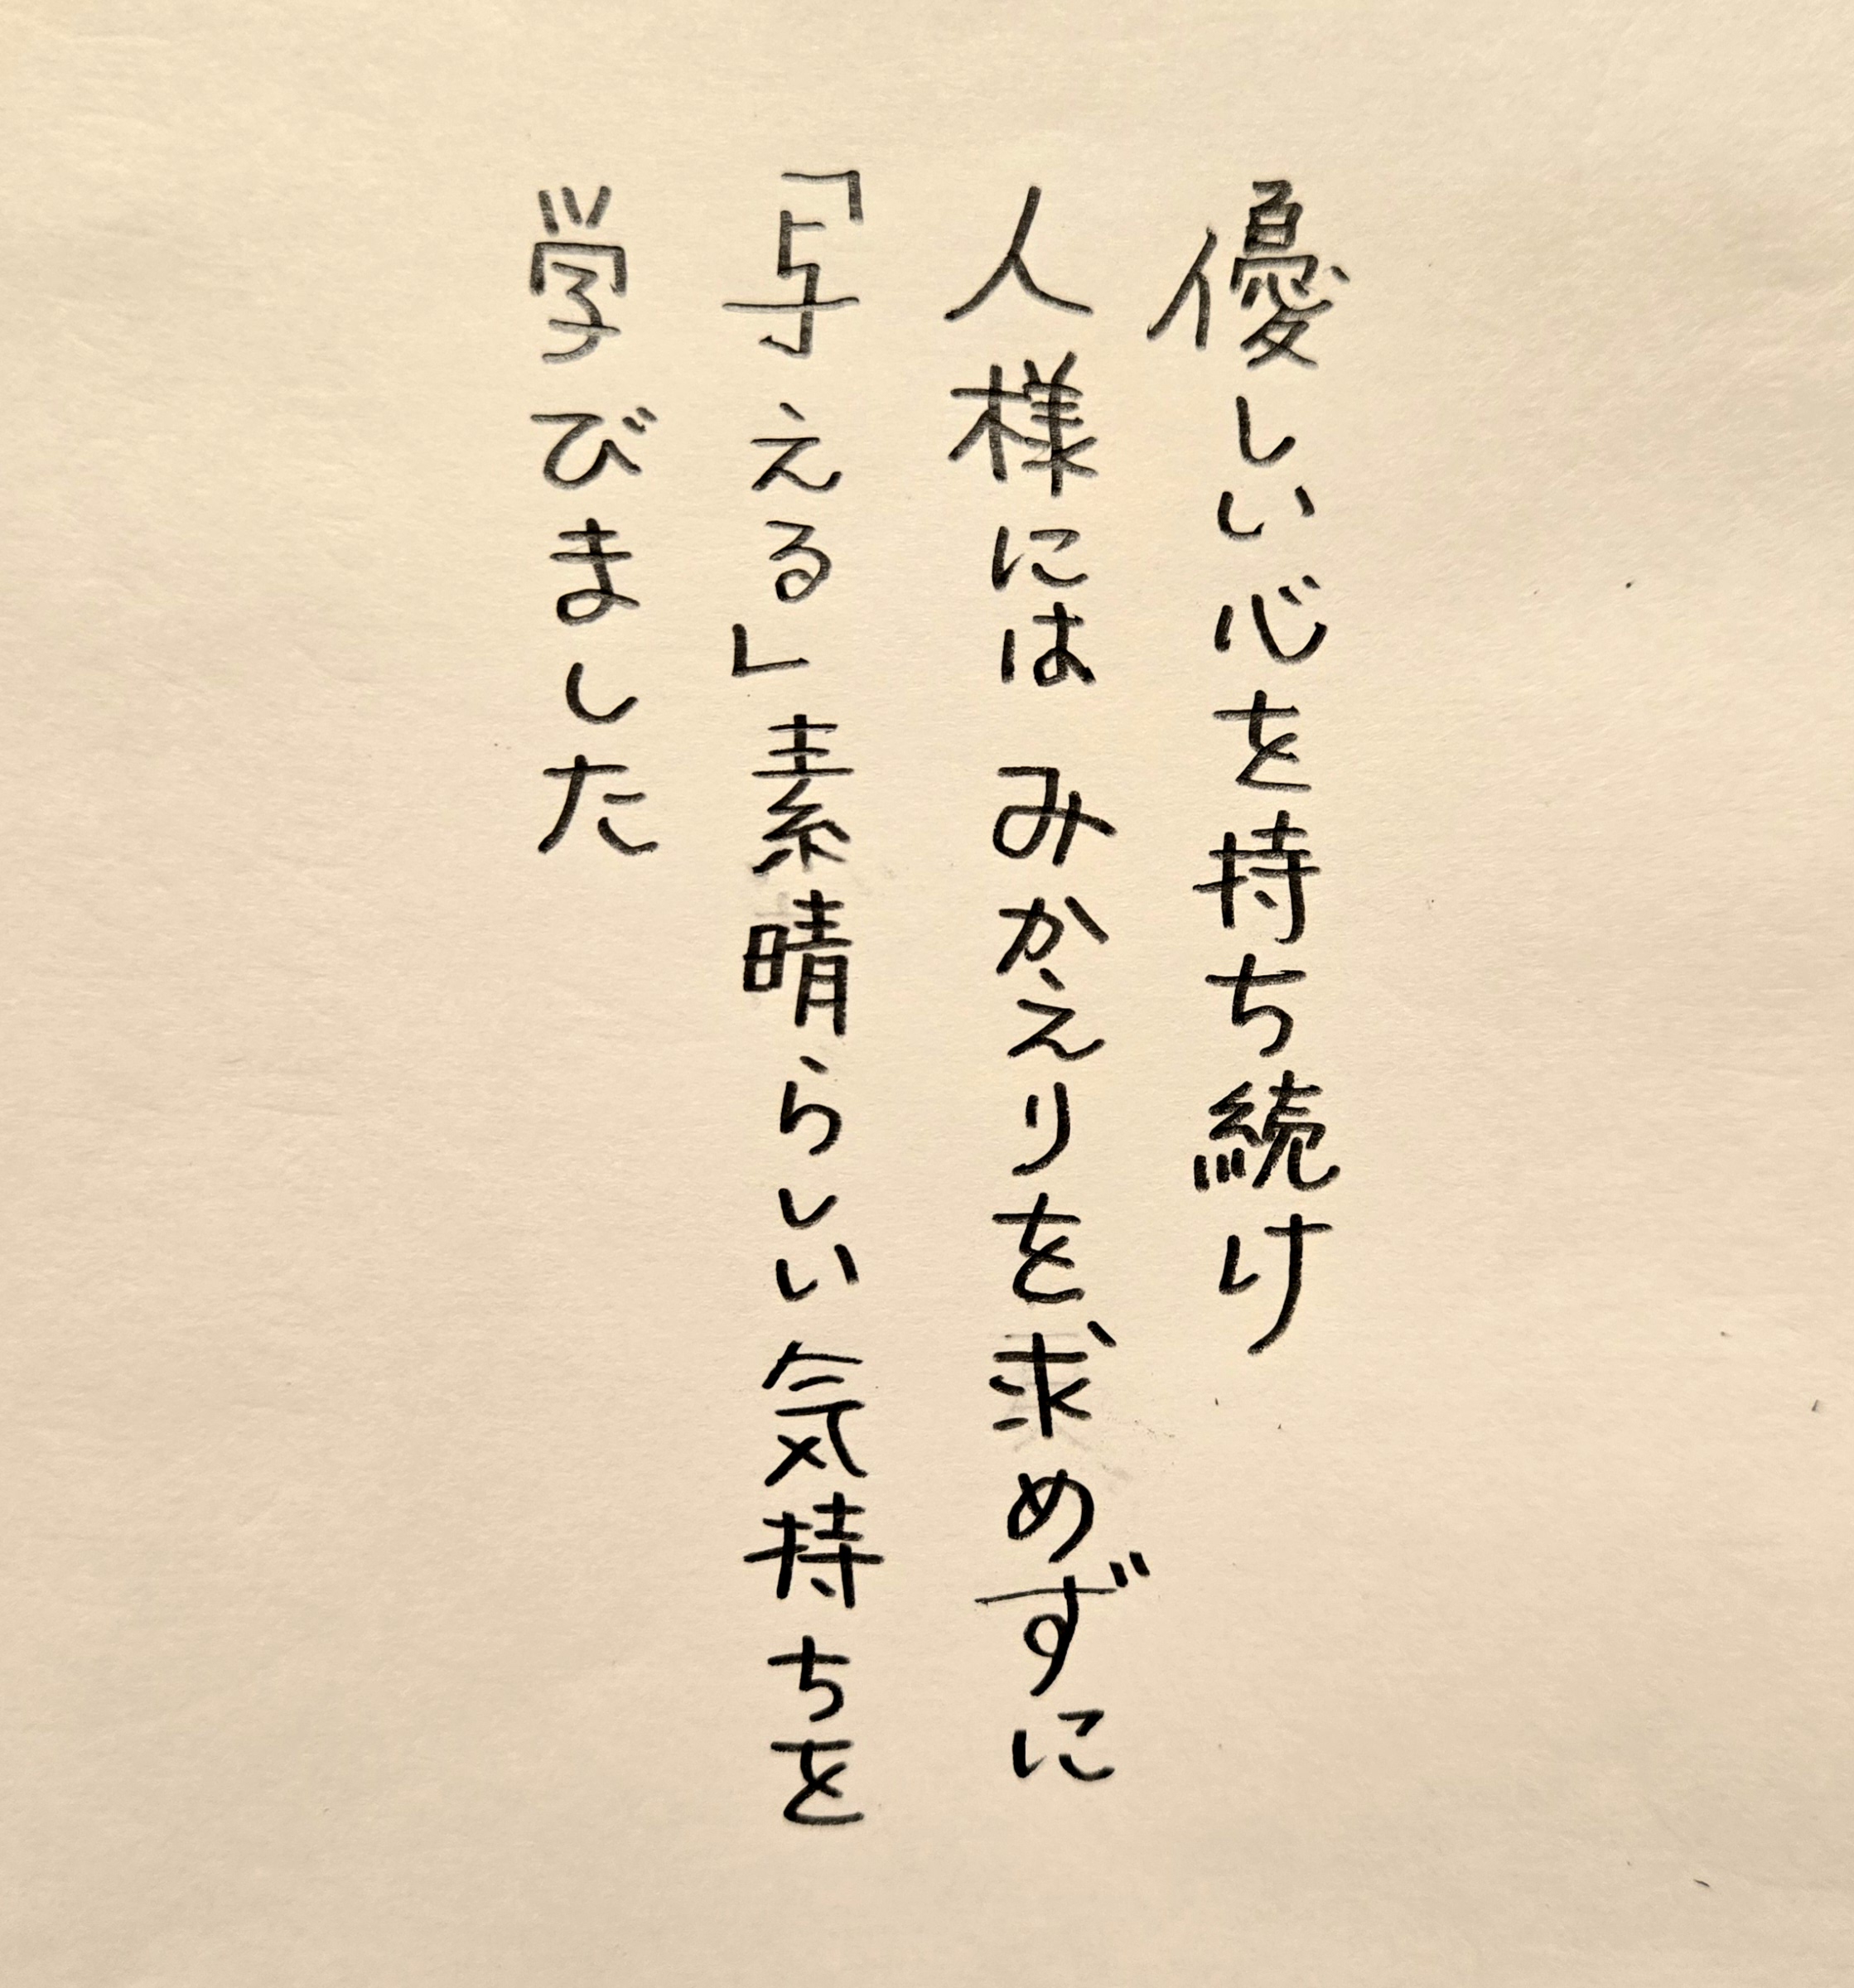 優しい心を持ち続け
人様には みかえりを求めずに
「与える」素晴らしい気持ちを
学びました